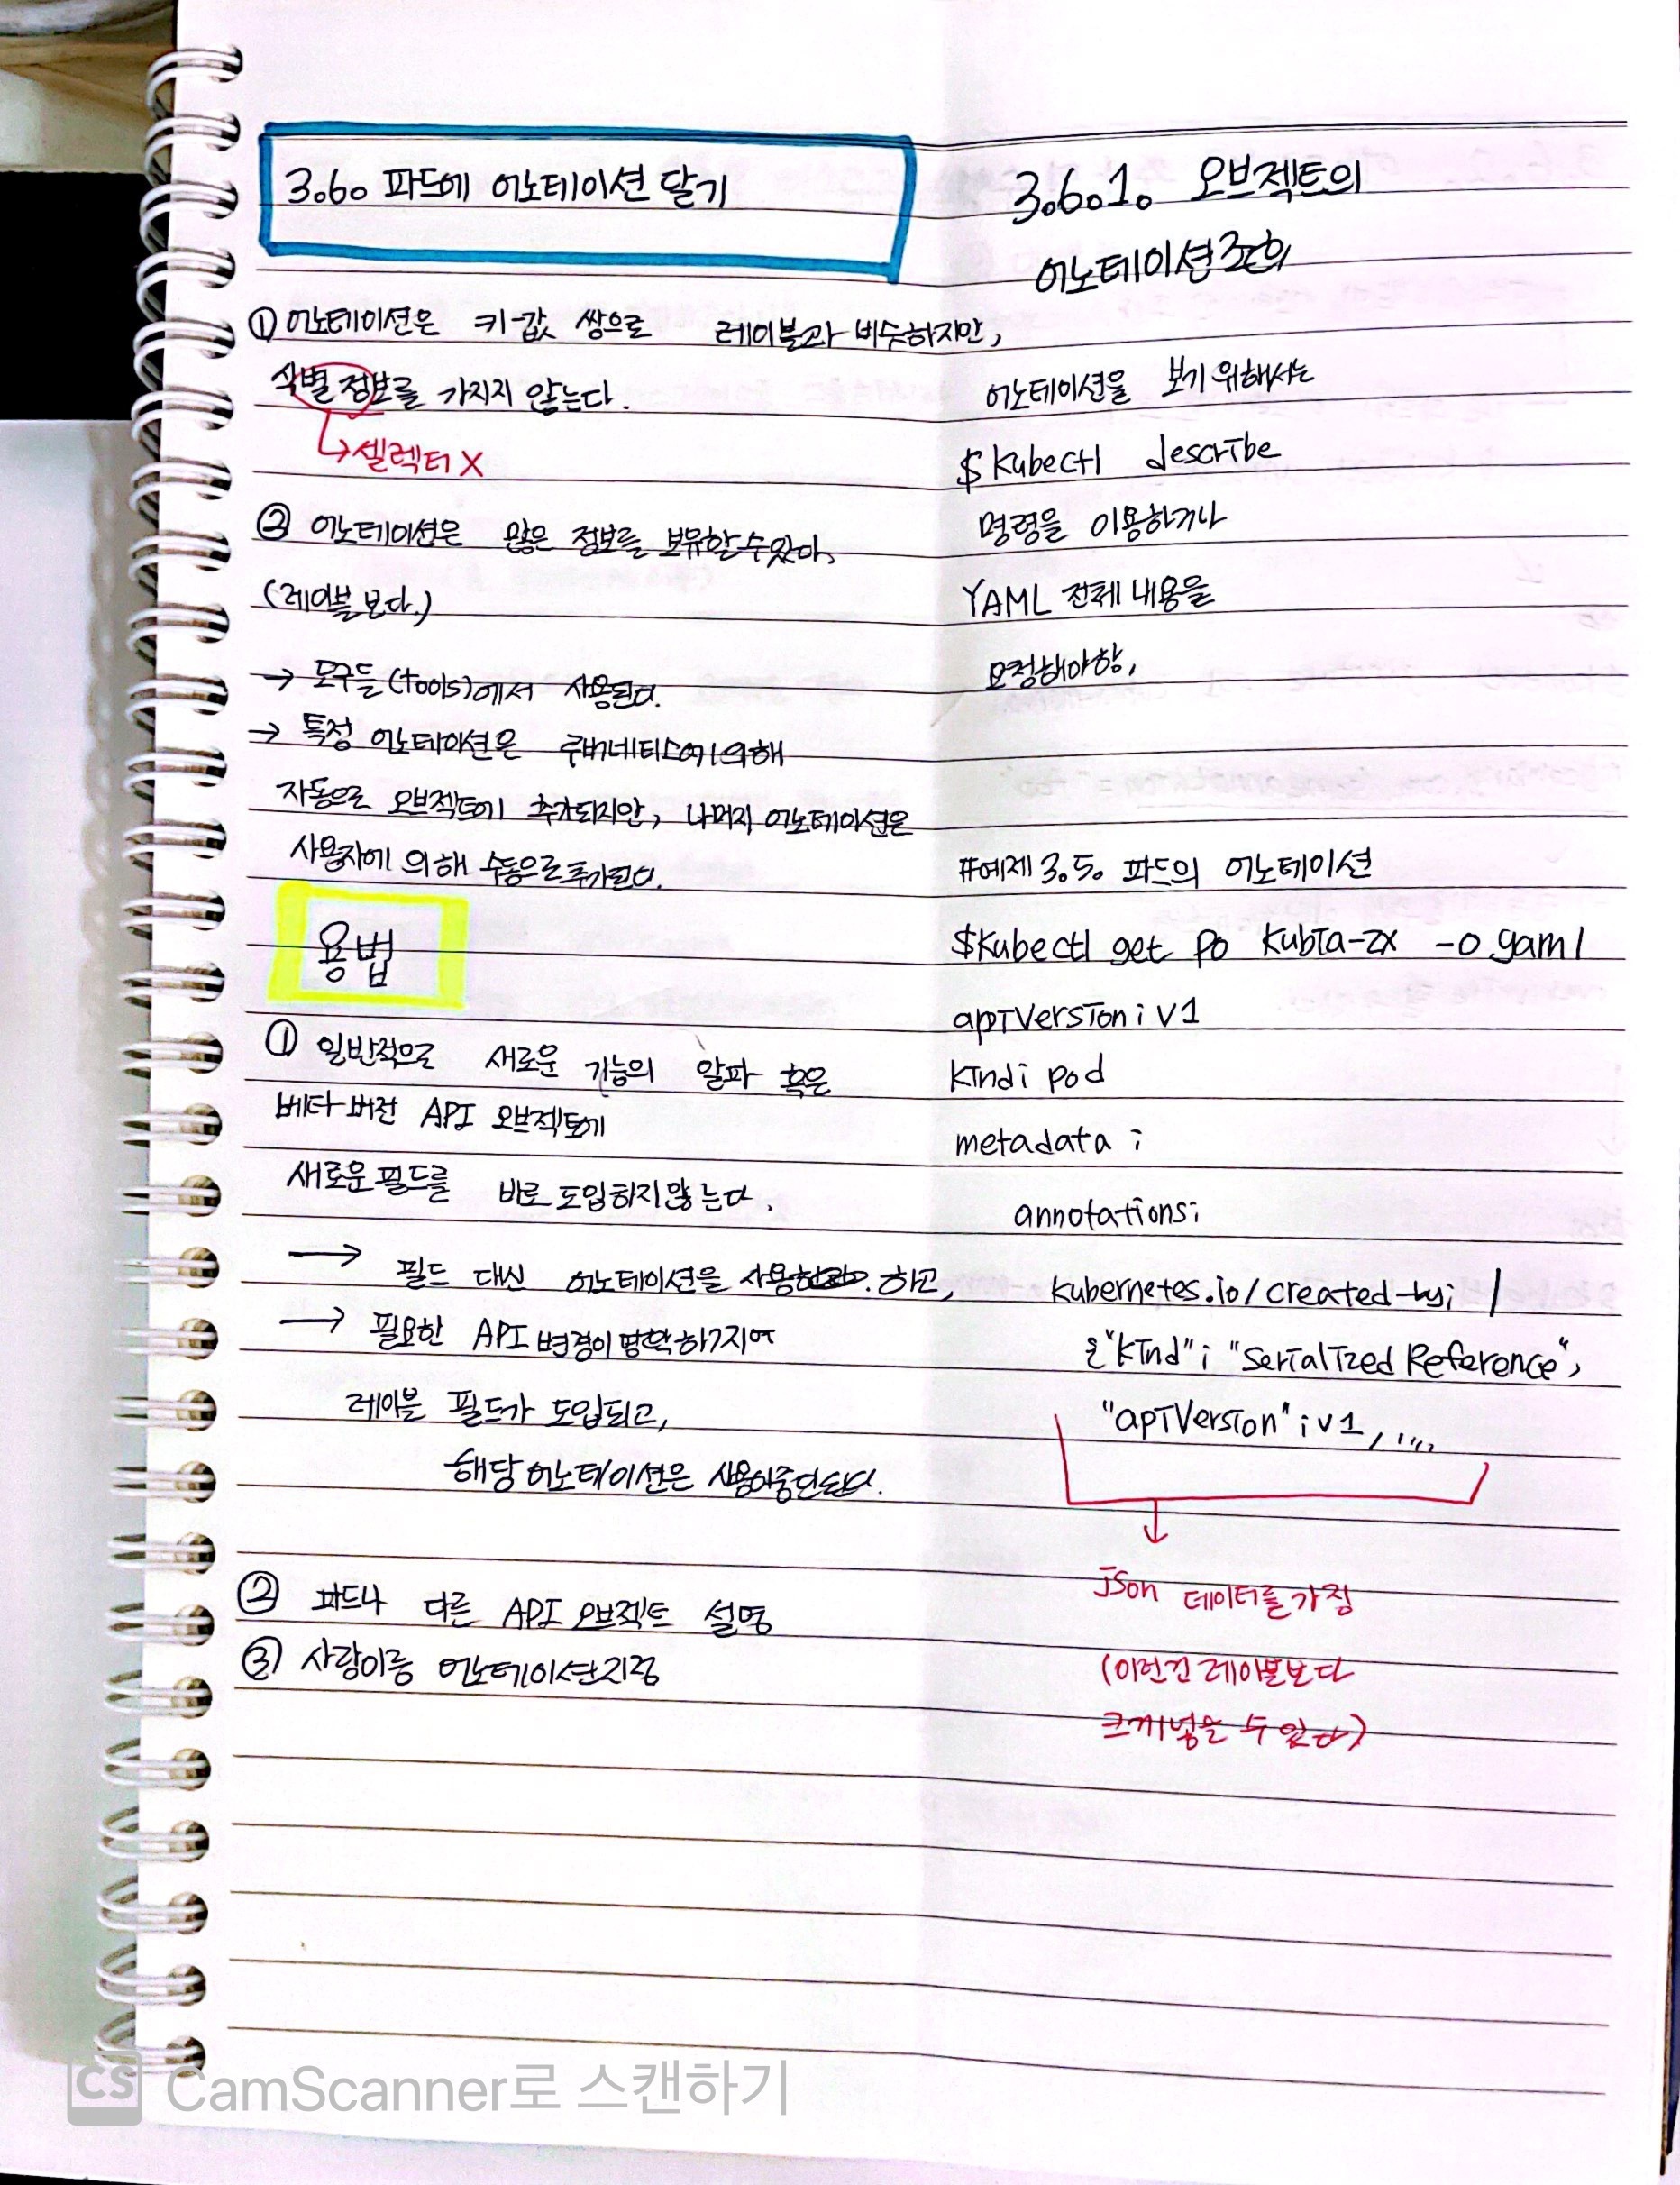 3.6. 파드에 어노테이션 달기
① 어노테이션은 키-값 쌍으로 레이블과 비슷하지만,
식별 정보를 가지지 않는다.
↳ 셀렉터 X
② 어노테이션은 많은 정보를 보유할 수 있다.
(레이블 보다.)
→ 도구들(tools)에서 사용된다.
→ 특정 어노테이션은 쿠버네티스에 의해
자동으로 오브젝트에 추가되지만, 나머지 어노테이션은
사용자에 의해 수동으로 추가된다.
용법
① 일반적으로 새로운 기능의 알파 혹은
베타 버전 API 오브젝트에
새로운 필드를 바로 도입하지 않는다.
→ 필드 대신 어노테이션을 사용하고,
→ 필요한 API 변경이 명확하게
레이블 필드가 도입되고,
해당 어노테이션은 사용이 중단된다.
② 파드나 다른 API 오브젝트 설명
③ 사람이름 어노테이션 지정
3.6.1. 오브젝트의
어노테이션 조회
어노테이션을 보기 위해서는
$ kubectl describe
명령을 이용하거나
YAML 전체 내용을
요청해야함.
#예제 3.5. 파드의 어노테이션
$kubectl get po kubia-zx -o yaml
apiVersion: v1
kind: pod
metadata :
annotations:
kubernetes.io/created-by: |
{"kind": "Serialized Reference",
"apiVersion": v1, ....
↓
json 데이터를 가짐
(이런건 레이블보다
크게 넣을 수 있다)
CS CamScanner로 스캔하기